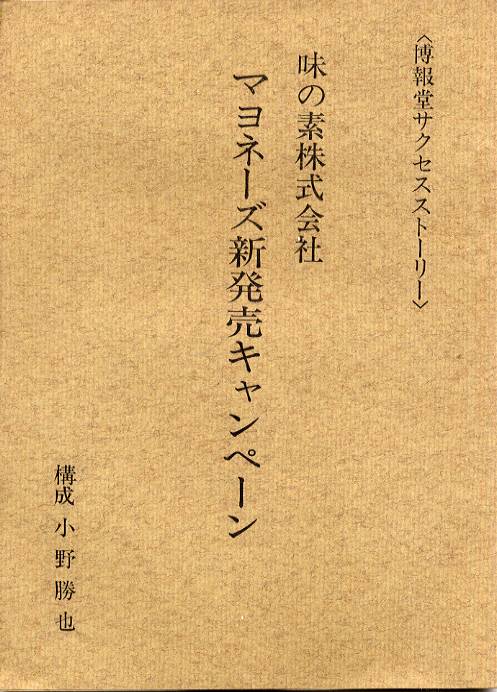 〈博報堂サクセスストーリー〉
味の素株式会社
マヨネーズ新発売キャンペーン
構成 小野勝也